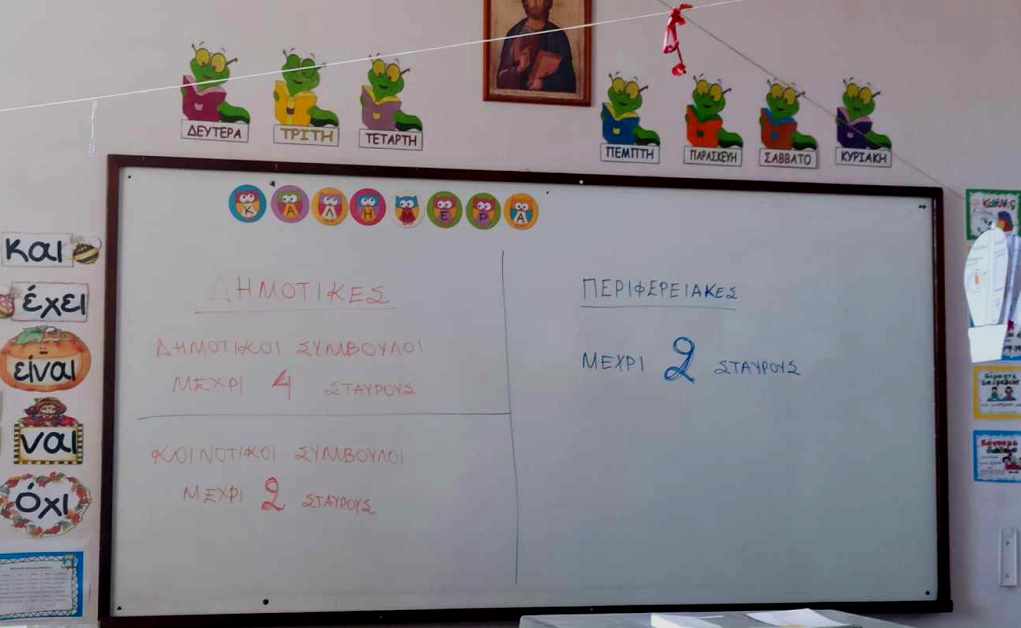 ΔΕΥΤΕΡΑ
ΤΡΙΤΗ
ΤΕΤΑΡΤΗ
ΠΕΜΠΤΗ
ΠΑΡΑΣΚΕΥΗ
ΣΑΒΒΑΤΟ
ΚΥΡΙΑΚΗ
ΚΑΛΗΜΕΡΑ
και
έχει
είναι
ναι
όχι
ΔΗΜΟΤΙΚΕΣ
ΔΗΜΟΤΙΚΟΙ ΣΥΜΒΟΥΛΟΙ
ΜΕΧΡΙ 4 ΣΤΑΥΡΟΥΣ
ΚΟΙΝΟΤΙΚΟΙ ΣΥΜΒΟΥΛΟΙ
ΜΕΧΡΙ 2 ΣΤΑΥΡΟΥΣ
ΠΕΡΙΦΕΡΕΙΑΚΕΣ
ΜΕΧΡΙ 2 ΣΤΑΥΡΟΥΣ